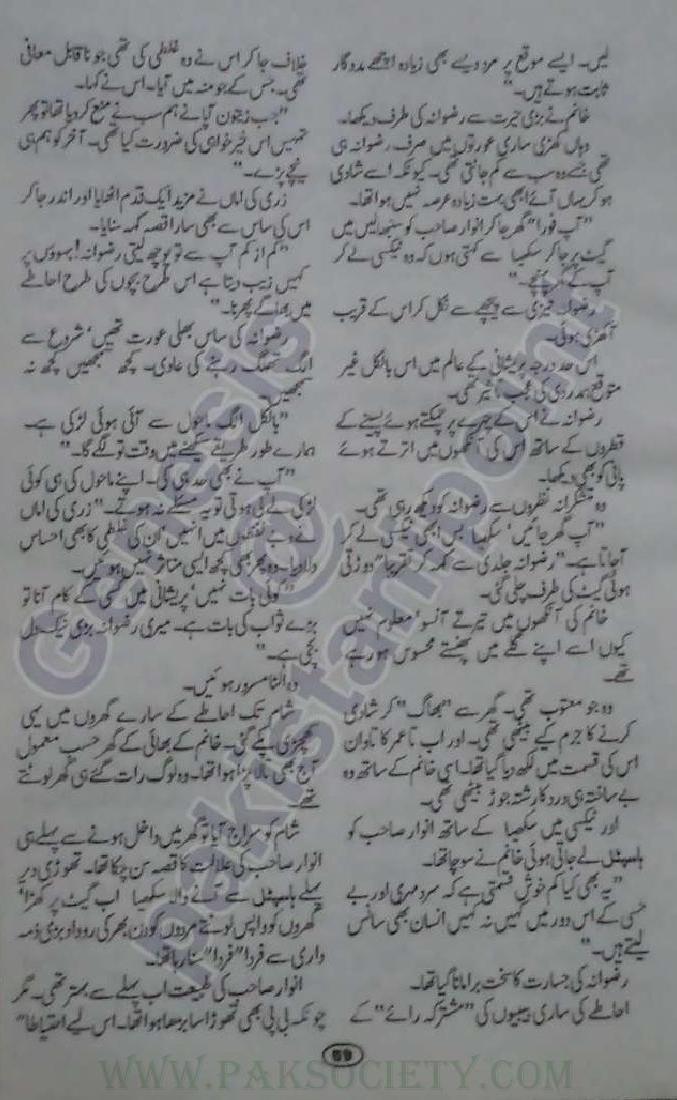 لیں۔ ایسے موقع پر مرد ویسے بھی زیادہ اچھے مددگار
ثابت ہوتے ہیں۔"
خانم نے بڑی حیرت سے رضوانہ کی طرف دیکھا۔
وہاں کھڑی ساری عورتوں میں صرف رضوانہ ہی
تھی جسے وہ سب سے کم جانتی تھی۔ کیونکہ اسے شادی
ہو کر یہاں آئے ابھی بہت زیادہ عرصہ نہیں ہوا تھا۔
"آپ فورا" گھر جا کر انوار صاحب کو سنبھالیں میں
گیٹ پر جا کر سکھیا سے کہتی ہوں کہ وہ ٹیکسی لے کر
آپ کے گھر پہنچے۔"
رضوانہ تیزی سے پیچھے سے نکل کر اس کے قریب
آ کھڑی ہوئی۔
اس حد درجہ پریشانی کے عالم میں اس بالکل غیر
متوقع ہمدردی کی عجب تاثیر تھی۔
رضوانہ نے اس کے چہرے پر ٹپکتے ہوئے پسینے کے
قطروں کے ساتھ اس کی آنکھوں میں اترتے ہوئے
پانی کو بھی دیکھا۔
وہ متشکرانہ نظروں سے رضوانہ کو دیکھ رہی تھی۔
"آپ گھر جائیں' سکھیا بس ابھی ٹیکسی لے کر
آ جاتا ہے۔" رضوانہ جلدی سے کہہ کر تقریبا" دوڑتی
ہوئی گیٹ کی طرف چلی گئی۔
خانم کی آنکھوں میں تیرتے آنسو' معلوم نہیں
کیوں اسے اپنے گلے میں پھنستے محسوس ہو رہے
تھے۔
وہ جو معتوب تھی۔ گھر سے "بھاگ" کر شادی
کرنے کا جرم کیے بیٹھی تھی۔ اور اب تا عمر کا تاوان
اس کی قسمت میں لکھ دیا گیا تھا۔ اسی خانم کے ساتھ وہ
بے ساختہ ہی درد کا رشتہ جوڑ بیٹھی تھی۔
اور ٹیکسی میں سکھیا کے ساتھ انوار صاحب کو
ہاسپٹل لے جاتی ہوئی خانم نے سوچا تھا۔
"یہ بھی کیا کم خوش قسمتی ہے کہ سرد مہری اور بے
حسی کے اس دور میں کہیں نہ کہیں انسان بھی سانس
لیتے ہیں۔"
رضوانہ کی جسارت کا سخت برا مانا گیا تھا۔
احاطے کی ساری بیبیوں کی "مشترکہ رائے" کے
خلاف جا کر اس نے وہ غلطی کی تھی جو ناقابل معافی
تھی۔ جس کے جو منہ میں آیا۔ اس نے کہا۔
"جب زیتون آپا نے ہم سب نے منع کر دیا تھا تو پھر
تمہیں اس خیر خواہی کی ضرورت کیا تھی۔ آخر کو ہم ہی
نیچے پڑے۔"
زری کی اماں نے مزید ایک قدم اٹھایا اور اندر جا کر
اس کی ساس سے بھی سارا قصہ کہہ سنایا۔
"کم از کم آپ سے تو پوچھ لیتی رضوانہ! بہوؤں پر
کہیں زیب دیتا ہے اس طرح بچوں کی طرح احاطے
میں بھاگے پھرنا۔"
رضوانہ کی ساس بھلی عورت تھیں' شروع سے
الگ تھلگ رہنے کی عادی۔ کچھ سمجھیں کچھ نہ
سمجھیں۔
"بالکل الگ ماحول سے آئی ہوئی لڑکی ہے۔
ہمارے طور طریقے سیکھنے میں وقت تو لگے گا۔"
"آپ نے بھی حد ہی کی۔ اپنے ماحول کی ہی کوئی
لڑکی لے لی ہوتی تو یہ مسئلے نہ ہوتے۔" زری کی اماں
نے دبے لفظوں میں انہیں' ان کی غلطی کا بھی احساس
دلا دیا۔ وہ پھر بھی کچھ ایسی متاثر نہیں ہوئیں۔
"کوئی بات نہیں' پریشانی میں کسی کے کام آنا تو
بڑے ثواب کی بات ہے۔ میری رضوانہ بڑی نیک دل
بچی ہے۔"
وہ الٹا مسرور ہوئیں۔
شام تک احاطے کے سارے گھروں میں یہی
کھچڑی پکے گئی۔ خانم کے بھائی کے گھر حسب معمول
آج بھی تالا پڑا ہوا تھا۔ وہ لوگ رات گئے ہی گھر لوٹتے
تھے۔
شام کو سراج آیا تو گھر میں داخل ہونے سے پہلے ہی
انوار صاحب کی علالت کا قصہ سن چکا تھا۔ تھوڑی دیر
پہلے ہاسپٹل سے آنے والا سکھیا اب گیٹ پر کھڑا'
گھروں کو واپس لوٹتے مردوں کو دن بھر کی روداد بڑی ذمہ
داری سے فردا" فردا" سنا رہا تھا۔
انوار صاحب کی طبیعت اب پہلے سے بہتر تھی۔ مگر
چونکہ بی پی بھی تھوڑا سا بڑھا ہوا تھا۔ اس لیے احتیاطا"
59
Genesis@pakistanipoint
WWW.PAKSOCIETY.COM